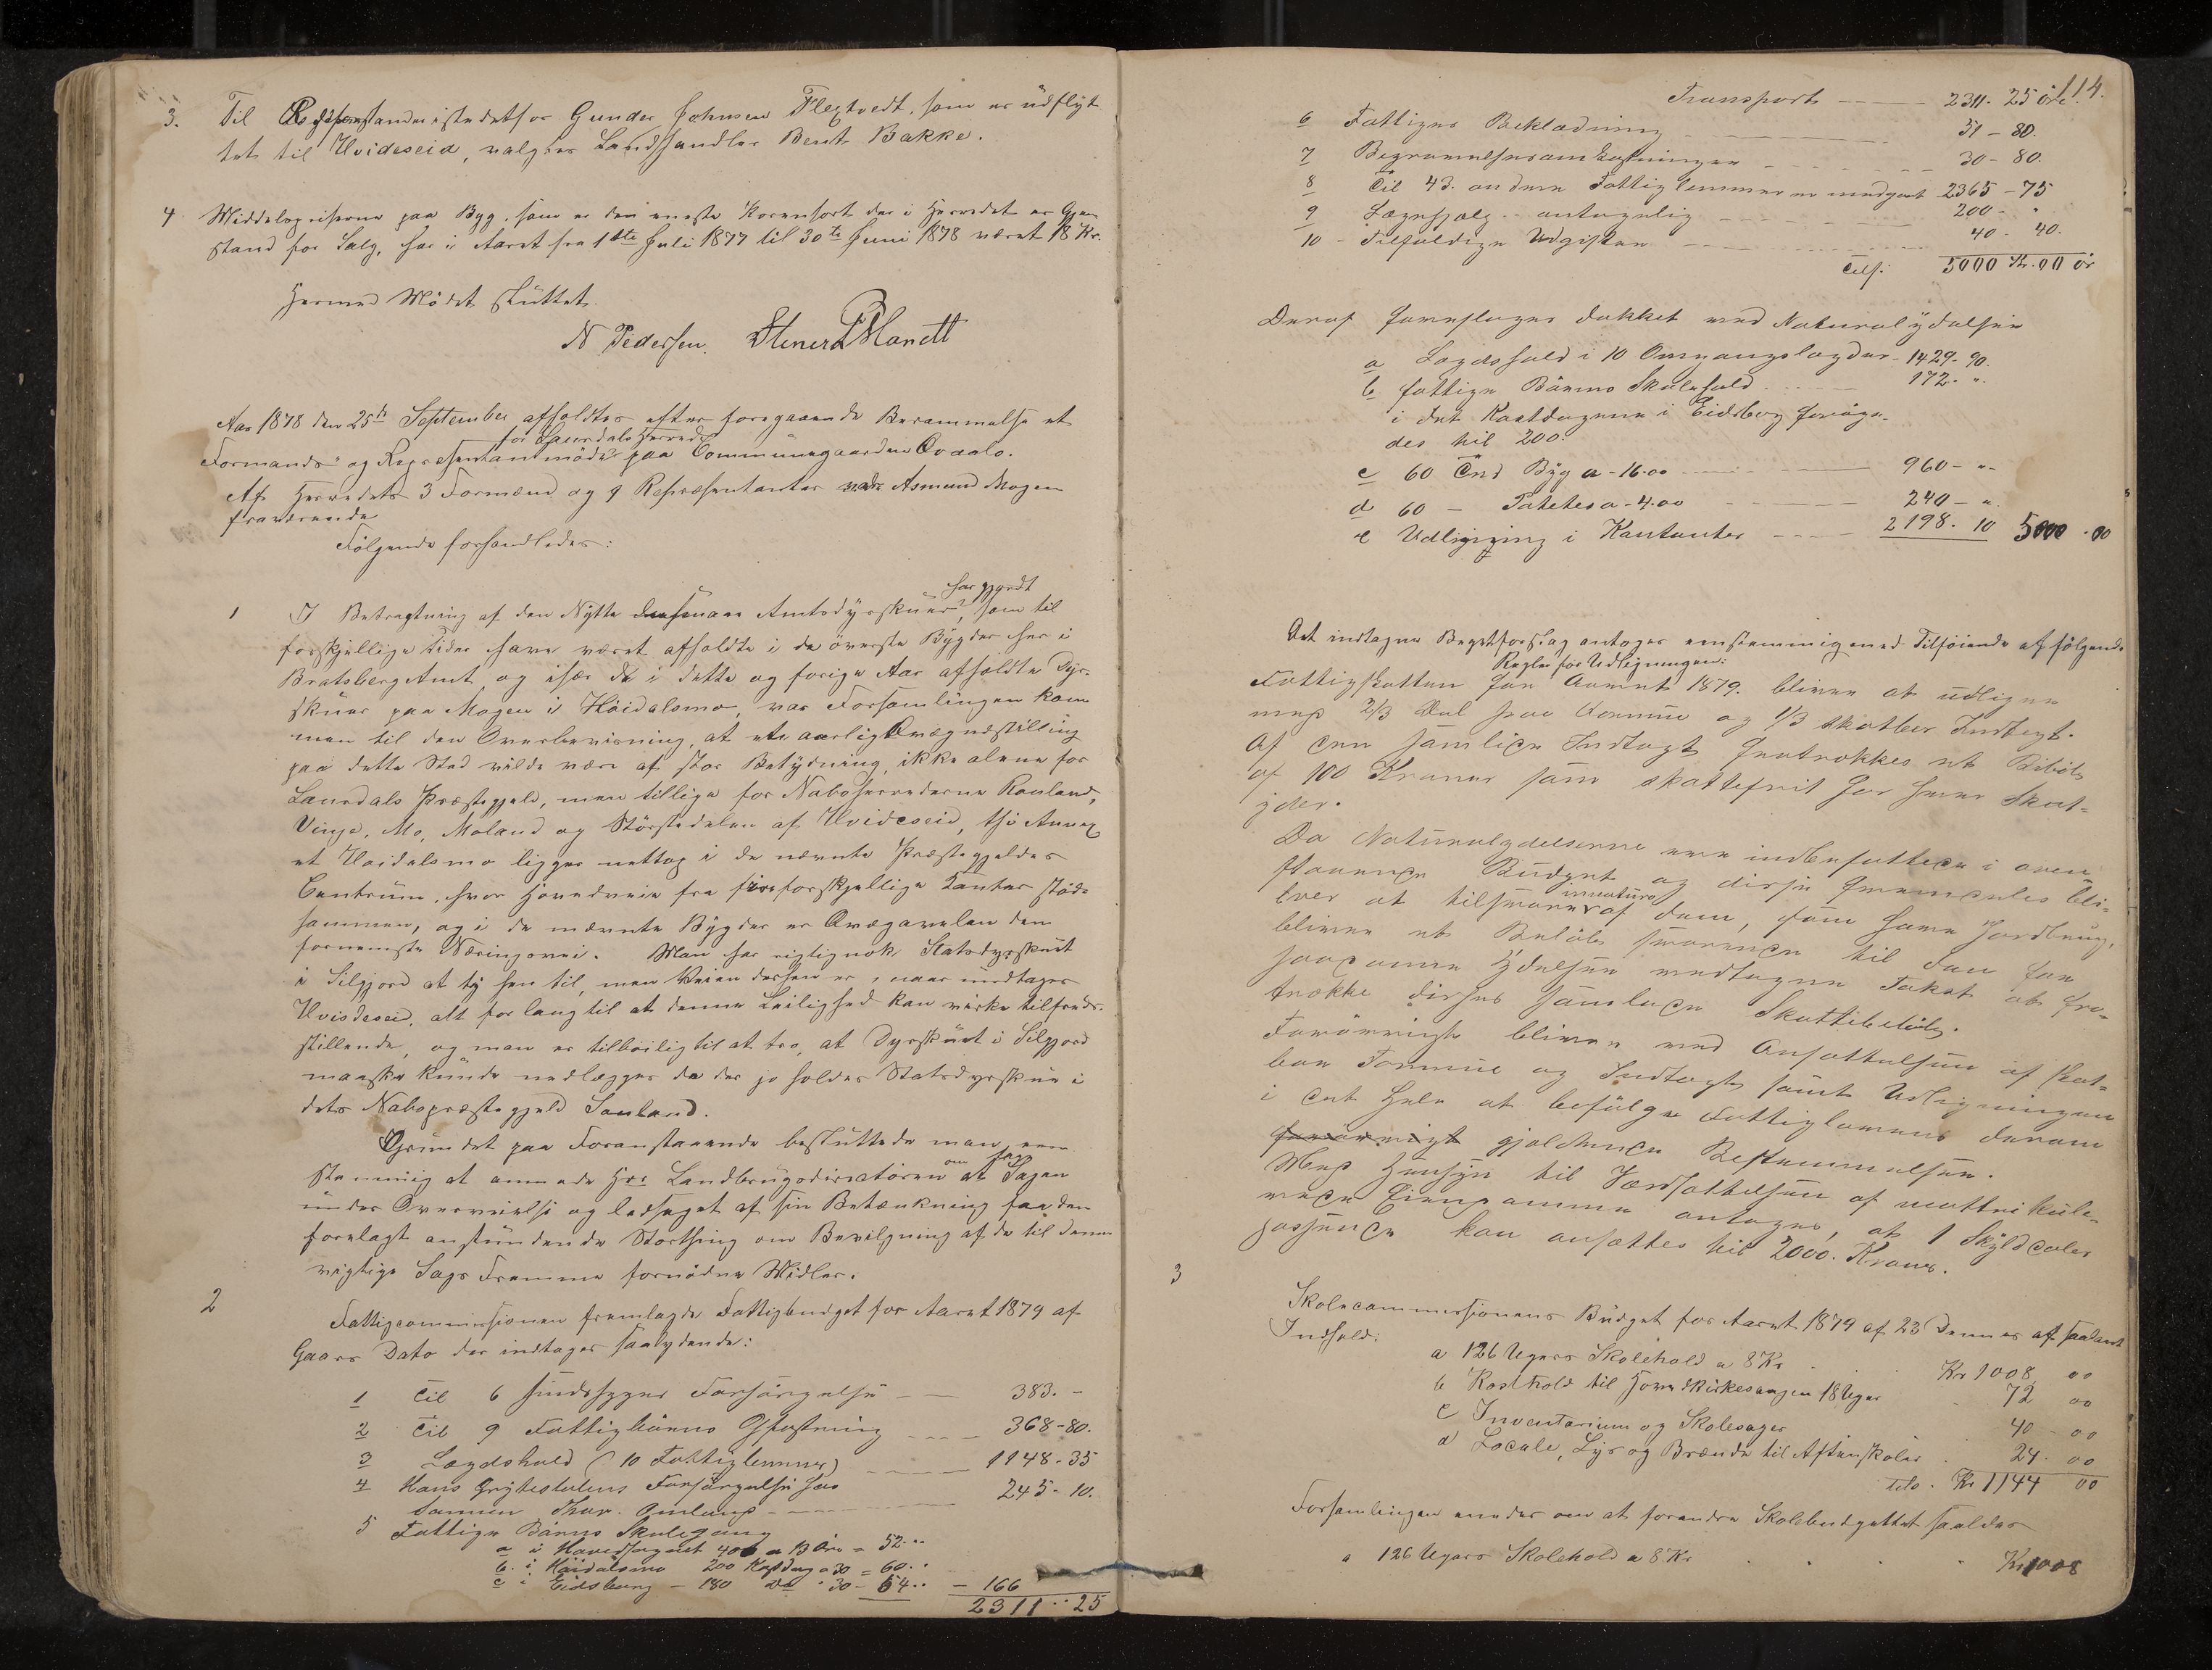 3. Til Repræsentander istedetfor Gunder Johnsen Flextvedt, som er udflyt
tet til Hvideseid, valgtes Landhandler Bent Bakke.
4 Middelpriserne paa Byg, som er den eneste Kornsort der i Herredet er Gjen
stand for Salg, har i Aaret fra 1ste Juli 1877 til 30te Juni 1878 været 18 Kr.
Hermed Mödet sluttet.
N Pedersen. Steiner Mandt
Aar 1878 den 25de September afholdtes efter foregaaende Berammelse et
for Laurdals Herred
Formands- og Repræsentantmöde paa Communegaarden Qvaale.
Af Herredets 3 Formænd og 9 Repræsentanter Asmund Mogen
fraværende
Følgende forhandledes:
har gjordt
1 I Betragtning af den Nytte Amtsdyrskuer, som til
forskjellige Tider have været afholdte i de överste Bygder her i
Bratsberg Amt og især de i dette og forige Aar afholdte Dyr-
skuer paa Mogen i Höidalsmo, var Forsamlingen kom
men til den Overbevisning, at et aarligt Qvægudstilling
paa dette Sted vilde være af stor Betydning, ikke alene for
Laurdals Præstegjeld, men tillige for Naboherrederne Rauland,
Vinje, Mo, Moland og Störstedelen af Hvideseid, thi Annex
et Höidalsmo ligger nettop i de nævnte Præstegjeldes
Centrum, hvor Hovedveie fra fire forskjellige Kanter stöde
sammen, og i de nævnte Bygder er Qvægavelen den
fornemste Næringsvei. Man har rigtignok Statsdyrskuet
i Silgjord at ty hen til, men Veien derhen er, naar undtages
Hvideseid, alt for lang til at denne Leilighed kan virke tilfreds-
stillende, og man er tilböielig til at tro, at Dyrskuet i Silgjord
maaske kunde nedlægges da der jo holdes Statsdyrskue i
dets Nabopræstegjeld Sauland.
Grundet paa Foranstaaende besluttede man een
stemmig at anmode Hr. Landbrugsdirectören om at Sagen
under Overveielse og ledsaget af sin Betænkning faa den
forelagt anstundende Storthing om Bevilgning af de til denne
vigtige Sags Fremme fornödne Midler.
2 Fattigcommissionen fremlagde Fattigbudget for Aaret 1879 af
Gaars Dato der indtages saalydende:
1 Til 6 sindssyges Forsörgelse 383. -
2 Til 9 Fattigbörns Opfostring 368-80.
3 Lægdshold (10 Fattiglemmer) 1148-35
4 Hans Grytestulens Forsörgelse hos
Sönnen Thor Omlund 245-10.
5 Fattige Börns Skolegang
a i Hovedsognet 400 a 13 Öre = 52..
b. i Höidalsmo 200 Kostdage a 30 = 60..
c i Eidsborg - 180 Do " 30 - 54.. - 166
2311..25
114.
Transport 2311. 25 öre
6 Fattiges Beklædning 51-80.
7 Begravelsesomkostninger 30-80.
8 Til 43. andre Fattiglemmer er medgaaet 2365-75
9 Lægehjælp antagelig 200- "
10 - Tilfældige Udgifter 40- 40.
Tils: 5000 Kr. 00 ör
Deraf foreslages dækket ved Naturalydelser
a Lægdshold i 10 Omgangslægder - 1429-90.
b fattige Börns Skolehold 172. "
i det Kostdagene i Eidsborg foröge-
des til 200.
c 60 Tnd Byg a - 16.00 960- "-
d 60 - Poteter a - 4.00 240- "
e Udligning i Kontanter 2198. 10 5000.00
Det indtagne Bugetforslag antoges eenstemmig med Tilföiende af fölgende
Regler for Udligningen:
Fattigskatten for Aaret 1879. bliver at udligne
med 2/3 Del paa Formue og 1/3 skatbar Indtægt.
Af den samlede Indtægt fratrækkes et Belöb
af 100 Kroner som skattefrit for hver Skat-
yder.
Da Naturalydelserne ere indbefattede i oven
staaende Budget og disse fremdeles bli-
inatura
ver at tilsvare af dem, som have Jordbrug,
bliver et Belöb svarende til den for
saadanne Ydelser vedtagne Takst at fra-
trække disses samlede Skattebelöb.
Forövrigt bliver ved Ansættelsen af skat-
bar Formue og Indtægt samt Udligningen
i det Hele at befölge Fattiglovens derom
gjældende Bestemmelser.
Med Hensyn til Værdsættelsen af matrikule-
rede Eiendomme antages, at 1 Skylddaler
passende kan ansættes til 2000. Kroner.
3 Skolecommissionens Budget for Aaret 1879 af 23 Dennes af saadant
Indhold:
a 126 Ugers Skolehold a 8 Kr Kr 1008. 00
b Kosthold til Hovedkirkesangen 18 Uger 72 00
c Inventarium og Skolesager 40 - 00
d Locale, Lys og Brænde til Aftenskoler 24. 00
tils. Kr 1144 00
Forsamlingen enedes om at forandre Skolebudgettet saaledes
a 126 Ugers Skolehold a 8 Kr Kr 1008